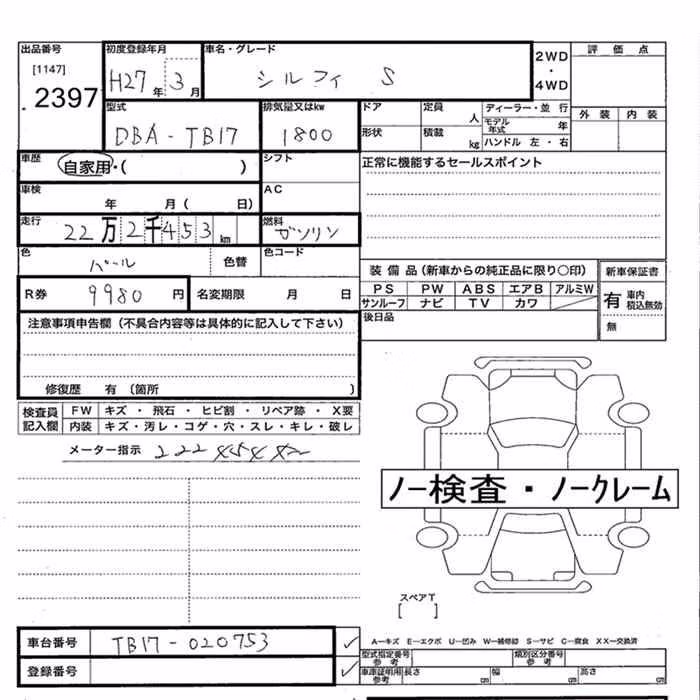 出品番号 初度登録年月 車名・グレード 評価点
[1147] H27年 3月 シルフィ S 2WD・4WD
2397 外装 内装
型式 排気量又はkw ドア 定員 人 ディーラー・並行
DBA-TB17 1800 モデル年式 年
形状 積載 kg ハンドル 左・右
車歴 自家用・( ) シフト 正常に機能するセールスポイント
車検 年 月( 日) AC
走行 22万2千453km 燃料 ガソリン
色 パール 色替 色コード
装備品(新車からの純正品に限り○印) 新車保証書
R券 9980円 名変期限 月 日 PS PW ABS エアB アルミW 有 車内積込無効
サンルーフ ナビ TV カワ
後日品 無
注意事項申告欄(不具合内容等は具体的に記入して下さい)
修復歴 有(箇所 )
検査員記入欄 FW キズ・飛石・ヒビ割・リペア跡・X要
内装 キズ・汚レ・コゲ・穴・スレ・キレ・破レ
メーター指示
ノー検査・ノークレーム
スペアT
[ ]
車台番号 TB17-020753 ✓
A-キズ E-エクボ U-凹み W-補修跡 S-サビ C-腐食 XX-交換済
型式指定番号 参考 類別区分番号 参考
登録番号 ✓ 車庫証明用 参考 長さ cm 幅 cm 高さ cm